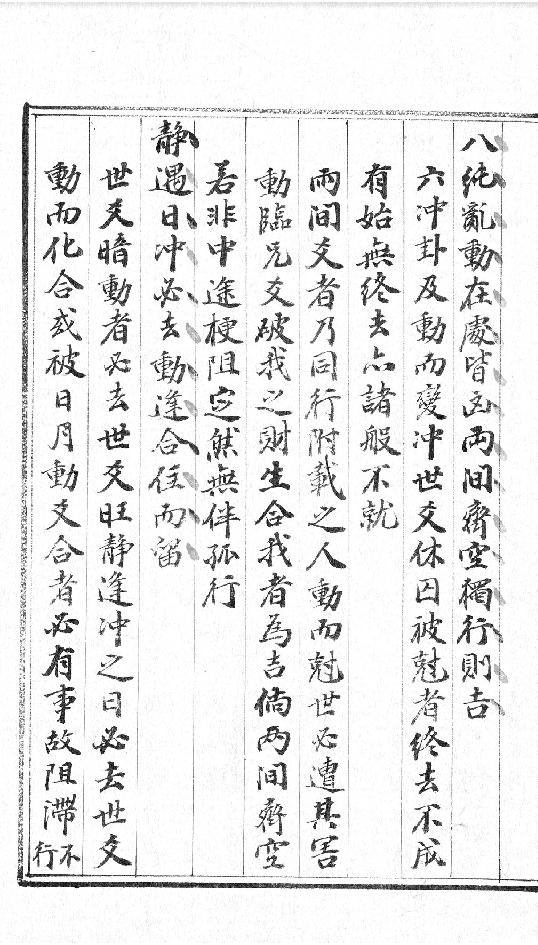 八純亂動在處皆凶兩间齊空獨行則吉
六冲卦及動而變冲世爻休囚被尅者終去不成
有始無终去亦諸般不就
兩间爻者乃同行附載之人動而尅世必遭其害
動臨兄爻破我之财生合我者為吉倘两间齊空
若非中途梗阻定然無伴孤行
静遇日冲必去動逢合住而留
世爻暗動者必去世爻旺静逢冲之日必去世爻
動而化合或被日月動爻合者必有事故阻滯不行